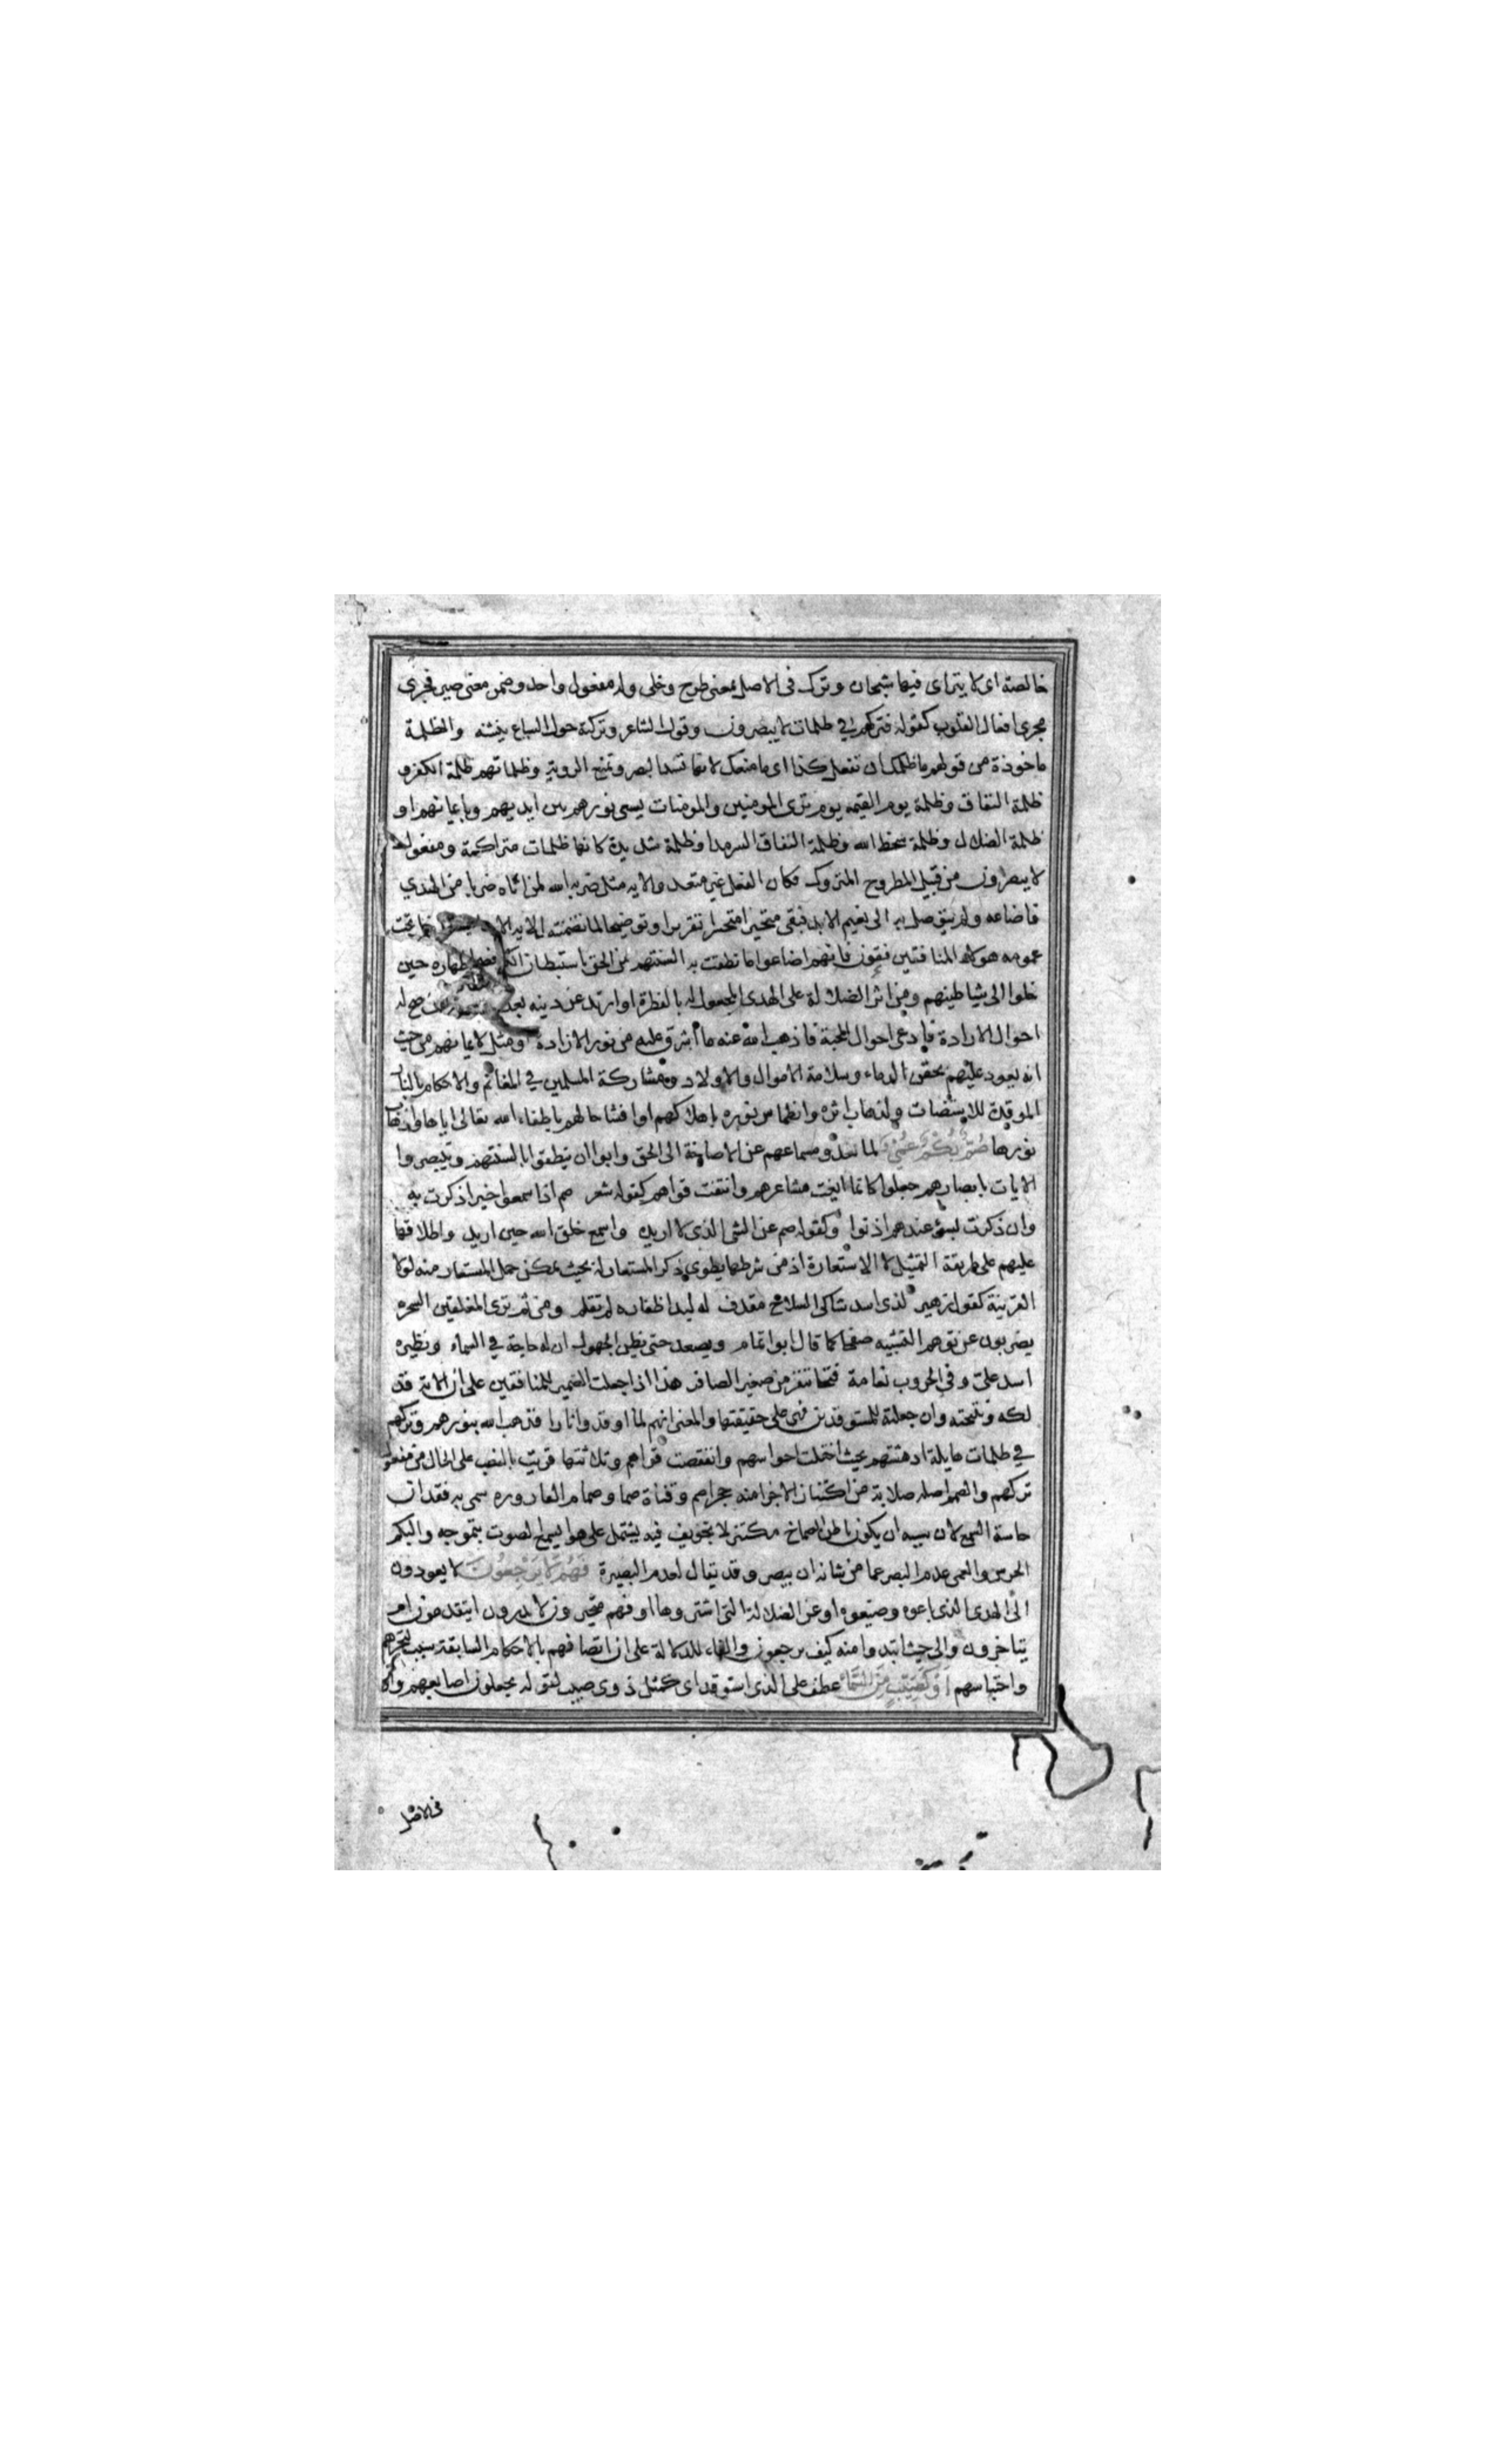 خالصة اى لا يتراى فيها شبحان وترك فى الاصل بمعنى طرح وخلى وله مفعول واحد وضمن معنى صير فجرى
مجرى افعال القلوب كقوله فتركهم في ظلمات لا يبصرون وقول الشاعر وتركته حول السباع ينشنه والظلمة
ماخوذة من قولهم ما ظلمك ان تفعل كذا اى ما منعك لانها تسد البصر وتمنع الروية وظلماتهم ظلمة الكفر و
ظلمة النفاق وظلمة يوم القيمه يوم ترى المومنين والمومنات يسعى نورهم بين ايديهم وبايمانهم او
ظلمة الضلال وظلمة سخط الله وظلمة النفاق السرمد او ظلمة شديدة كانها ظلمات متراكمة ومفعول
لا يبصرون من قبيل المطروح المتروك فكان الفعل غير متعد والايه مثل ضربه الله لمن اتاه ضربا من الهدى
فاضاعه ولم يتوصل به الى نعيم الابد فبقى متحيرا متحسرا تقريرا وتوضيحا لما تضمنته الايه تحت
عمومه هولاء المنافقين فانهم اضاعوا ما نطقت به السنتهم من الحق باستبطان اظهاره حين
خلوا الى شياطينهم ومن اثر الضلالة على الهدى المجعول له بالفطرة او ارتد عن دينه بعد صح له
احوال الارادة فادعى احوال المحبة فاذهب الله عنه ما اشرق عليه من نور الارادة ومثل لايمانهم من حيث
انه يعود عليهم بحقن الدماء وسلامة الاموال والاولاد ومشاركة المسلمين في المغانم والاحكام بالنار
الموقدة للاستضات ولذهاب اثره وانطماس نوره باهلاكهم او افشا حالهم باطفاء الله تعالى اياها واذهاب
نورها صُمٌّ بُكْمٌ عُمْيٌ لما سدوا مسامعهم عن الاصاخة الى الحق وابوا ان ينطقوا بالسنتهم ويتبصروا
الايات بابصارهم جعلوا كانما ايفت مشاعرهم وانتفت قواهم كقوله شعر صم اذا سمعوا خيرا ذكرت به
وان ذكرت بسوء عندهم اذنوا وكقوله صم عن الشى الذى لا اريده واسمع خلق الله حين اريد واطلاقها
عليهم على طريقة التمثيل لا الاستعارة اذ من شرطها يطوى ذكر المستعار له بحيث يمكن حمل المستعار منه لولا
القرينة كقول زهير لذى اسد شاكى السلاح مقذف له لبد اظفاره لم تقلم ومن ثم ترى المفلقين السحره
يضربون عن توهم التشبيه صفحا كما قال ابو اتمام ويصعد حتى يظن الجهول ان له حاجة في السماء ونظيره
اسد علىّ وفي الحروب نعامة فتخا تنفر من صفير الصافر هذا اذا جعلت الضمير للمنافقين على ان الاية فذ
لكه ونتيجته وان جعلته للمستوقدين فهى على حقيقتها والمعنى انهم لما اوقدوا نارا فذهب الله بنورهم وتركهم
في ظلمات هايلة ادهشتهم بحيث اختلت حواسهم وانتقصت قواهم وثلاثتها قريت بالنصب على الحال من مفعول
تركهم والصم اصله صلابة من اكتناز الاجزا منه حجر اصم وقناة صما وصمام القاروره سمى به فقدان
حاسة السمع لان سببه ان يكون باطن الصماخ مكتنز لا تجويف فيه يشتمل على هوا يسمع الصوت بتموجه والبكم
الخرس والعمى عدم البصر عما من شانه ان يبصر وقد يقال لعدم البصيرة فَهُمْ لَا يَرْجِعُونَ لا يعودون
الى الهدى الذى باعوه وضيعوه او عن الضلالة التى اشتروها او فهم متحيرون لا يدرون ايتقدمون ام
يتاخرون والى حيث ابتدوا منه كيف يرجعون والفاء للدلالة على ان اتصافهم بالاحكام السابقة سبب لتحيرهم
واحتباسهم أَوْ كَصَيِّبٍ مِنَ السَّمَاءِ عطف على الذى استوقد اى كمثل ذوى صيب لقوله يجعلون اصابعهم واو
فى الاصل